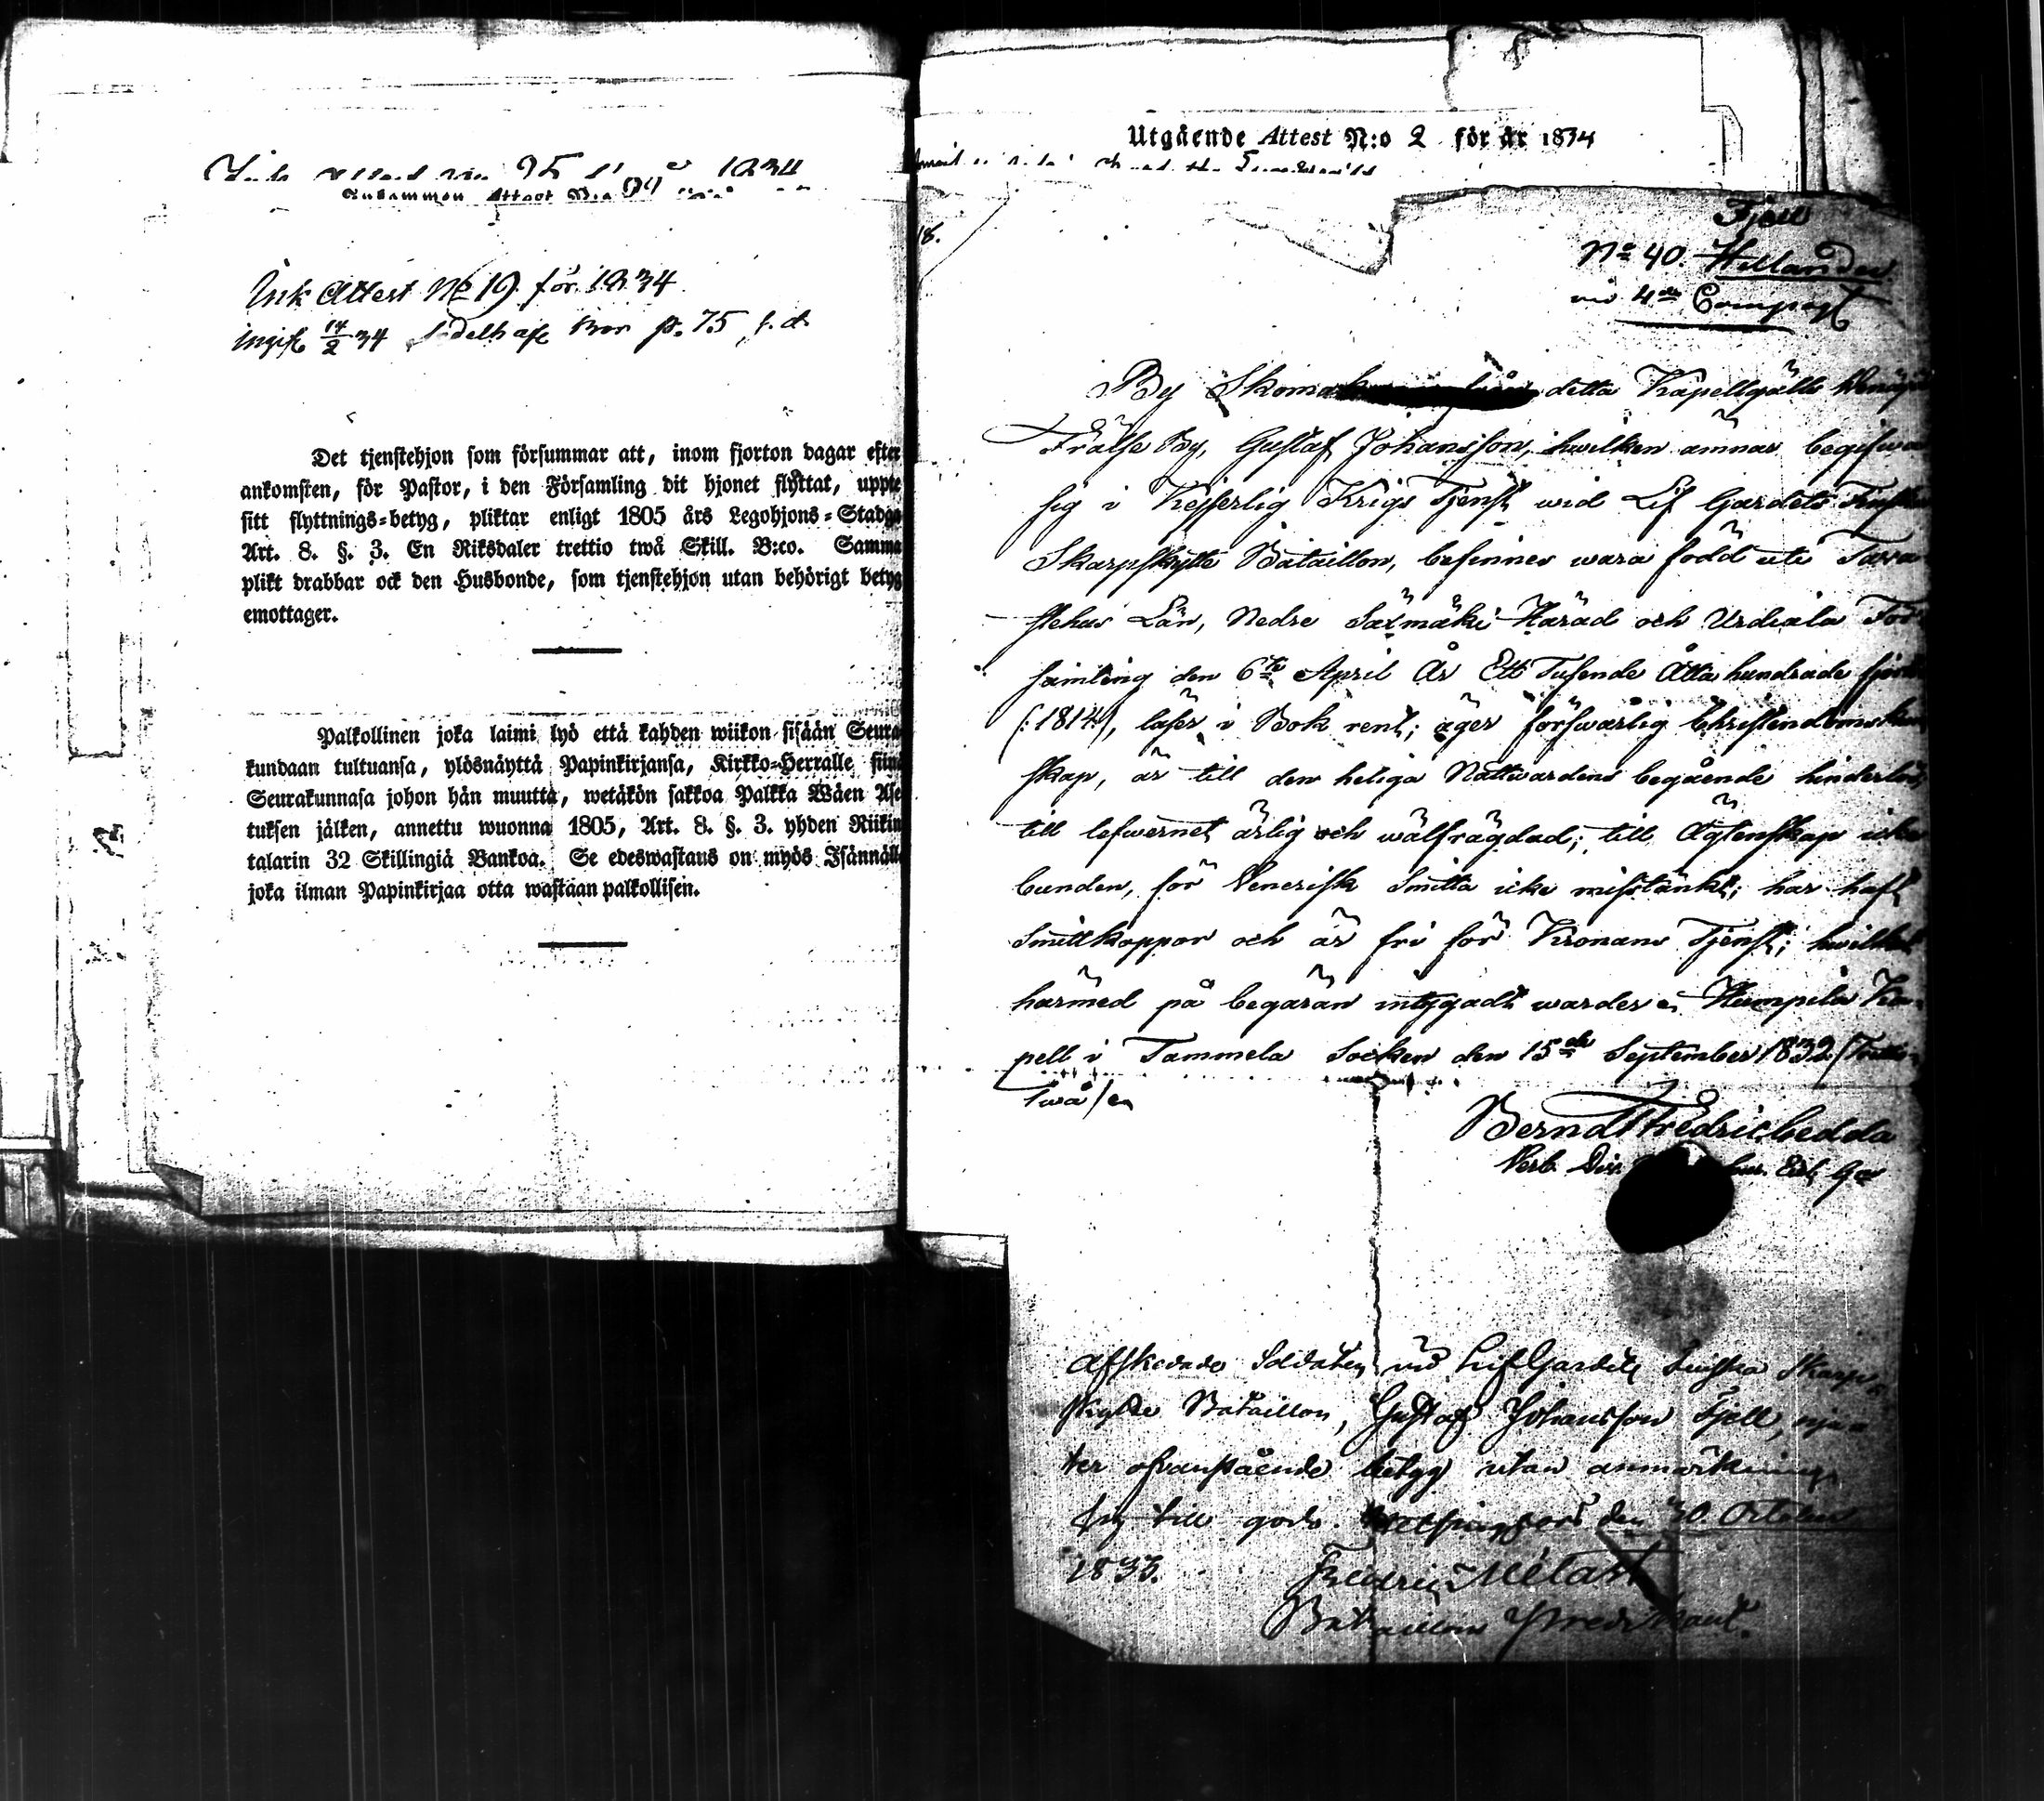 1834
Inkommen Attest N:o
Ink Attest No 19 för 1834
p. 75
Det tjenstehjon som försummar att, inom fjorton dagar efter
ankomsten, för Pastor, i den Församling dit hjonet flyttat, uppte
sitt flyttnings-betyg, pliktar enligt 1805 års Legohjons-Stadga
Art. 8. §. 3. En Riksdaler trettio twå Skill. B:co. Samma
plikt drabbar ock den Husbonde, som tjenstehjon utan behörigt betyg
emottager.
Palkollinen joka laimi lyö että kahden wiikon sisään Seura
kundaan tultuansa, ylösnäyttä Papinkirjansa, Kirkko-Herralle siinä
Seurakunnasa johon hän muutta, wetäkön sakkoa Palkka Wäen Ase
tuksen jälken, annettu wuonna 1805, Art. 8. §. 3. yhden Riikin
talarin 32 Skillingiä Bankoa. Se edeswastaus on myös Isännällä
joka ilman Papinkirjaa otta wastaan palkollisen.
Utgående Attest N:o 2 för år 1834
18.
Fjell
No 40. Hellander
wid 4de Compagt
By Skomak detta Kapellgälls
Frälse By, Gustaf Johansson, hwilken ämnar begifwa
sig i Kejserlig Krigs Tjenst wid Lif Gardets Finska
Skarpskytte Bataillon, befinnes wara född uti Tawa
stehus Län, Nedre Säxmäki Härad och Urdiala För
samling den 6te April År Ett Tusende Åtta hundrade fjorton
(:1814:), läser i Bok rent; äger förswarlig Christendomskun
skap, är till den heliga Nattwardens begående hinderlös,
till lefwernet ärlig och wälfrägdad; till Ägtenskap icke
bunden, för Venerisk Smitta icke misstänkt; har haft
Smittkoppor och är fri för Kronans Tjenst; hwilket
härmed på begäran intygadt warder i Humpila Ka-
pell i Tammela Socken den 15de September 1832 (Trettio
twå/en
Berndt Fredric Cedda
Afskedade Soldaten wid Lif Gardets Finska Skarp-
skytte Bataillon, Gustaf Johansson Fjell, nju-
ter ofvanstående betyg utan anmärkning
sig till godo. Helsingfors den 30 October
1833. Fredric
Bataillons Predikant.